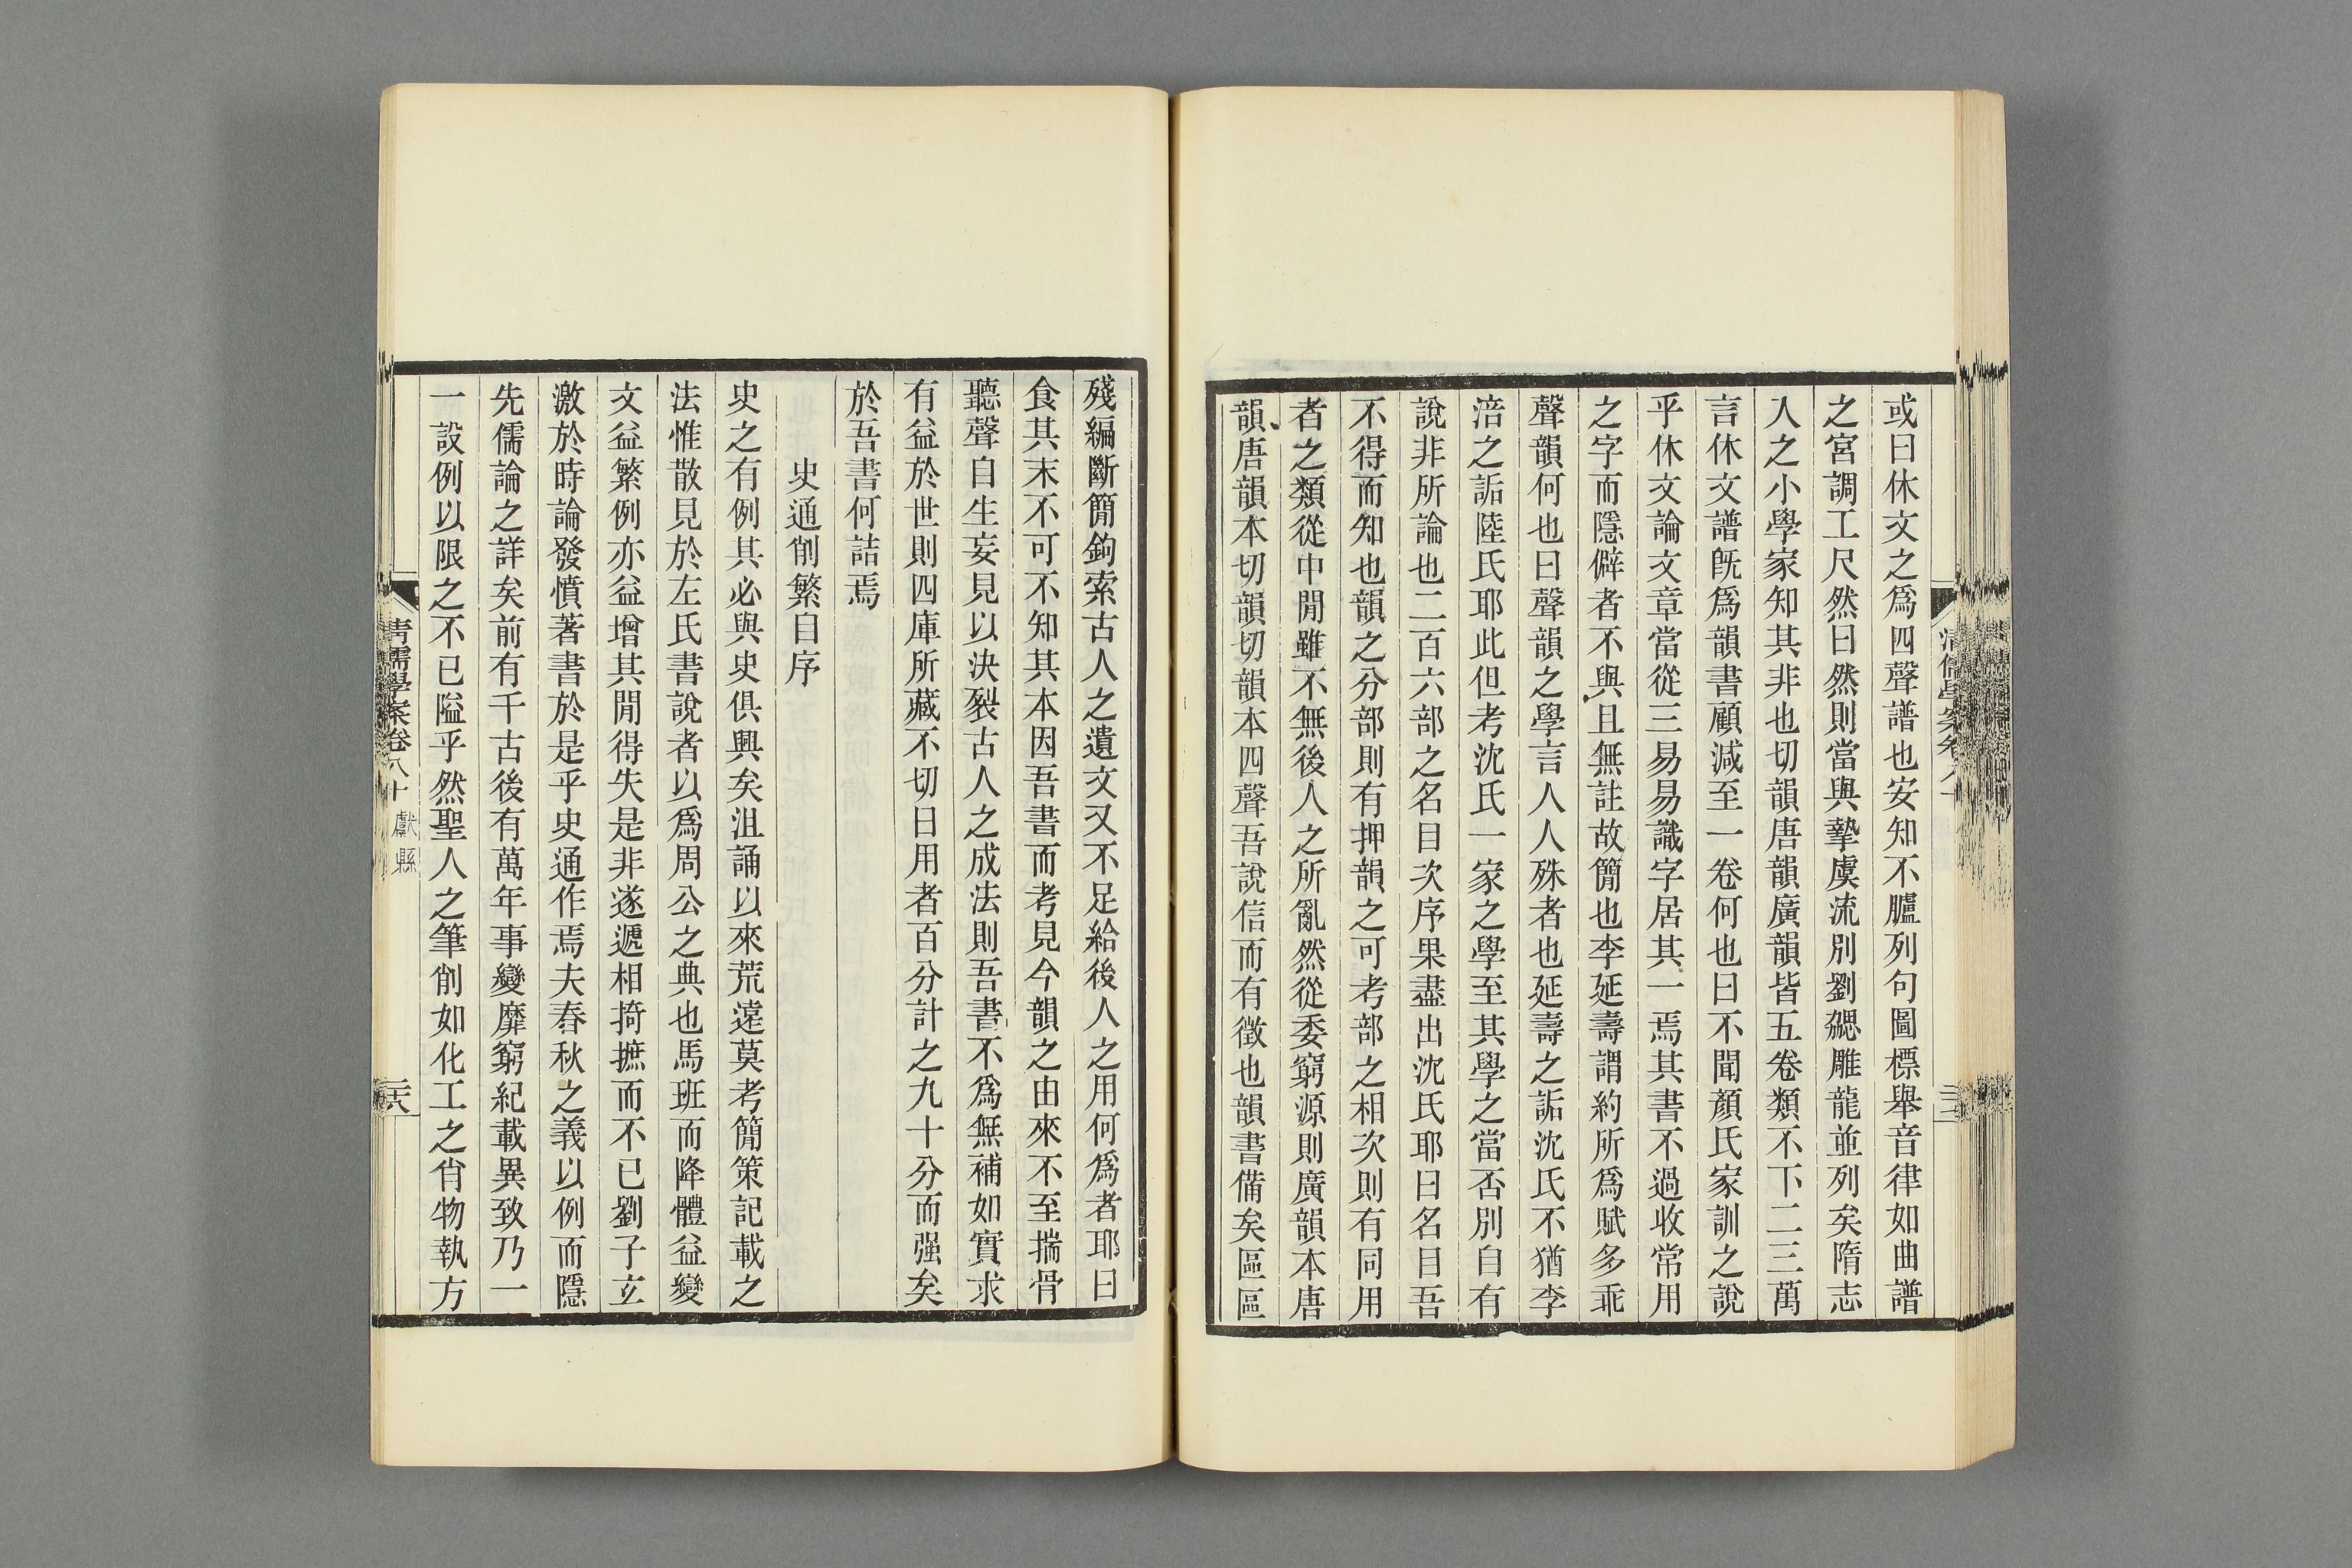 或曰休文之爲四聲譜也安知不臚列句圖標舉音律如曲譜
之宮調工尺然曰然則當與摯虞流別劉勰雕龍並列矣隋志
入之小學家知其非也切韻唐韻廣韻皆五卷類不下二三萬
言休文譜旣爲韻書顧減至一卷何也曰不聞顏氏家訓之說
乎休文論文章當從三易易識字居其一焉其書不過收常用
之字而隱僻者不與且無註故簡也李延壽謂約所爲賦多乖
聲韻何也曰聲韻之學言人人殊者也延壽之詬沈氏不猶李
涪之詬陸氏耶此但考沈氏一家之學至其學之當否別自有
說非所論也二百六部之名目次序果盡出沈氏耶曰名目吾
不得而知也韻之分部則有押韻之可考部之相次則有同用
者之類從中閒雖不無後人之所亂然從委窮源則廣韻本唐
韻唐韻本切韻切韻本四聲吾說信而有徵也韻書備矣區區
殘編斷簡鉤索古人之遺文又不足給後人之用何爲者耶曰
食其末不可不知其本因吾書而考見今韻之由來不至揣骨
聽聲自生妄見以決裂古人之成法則吾書不爲無補如實求
有益於世則四庫所藏不切日用者百分計之九十分而强矣
於吾書何詰焉
史通削繁自序
史之有例其必與史俱興矣沮誦以來荒遠莫考簡策記載之
法惟散見於左氏書說者以爲周公之典也馬班而降體益變
文益繁例亦益增其閒得失是非遂遞相掎摭而不已劉子玄
激於時論發憤著書於是乎史通作焉夫春秋之義以例而隱
先儒論之詳矣前有千古後有萬年事變靡窮紀載異致乃一
一設例以限之不已隘乎然聖人之筆削如化工之肖物執方
清儒學案卷八十 獻縣
二六